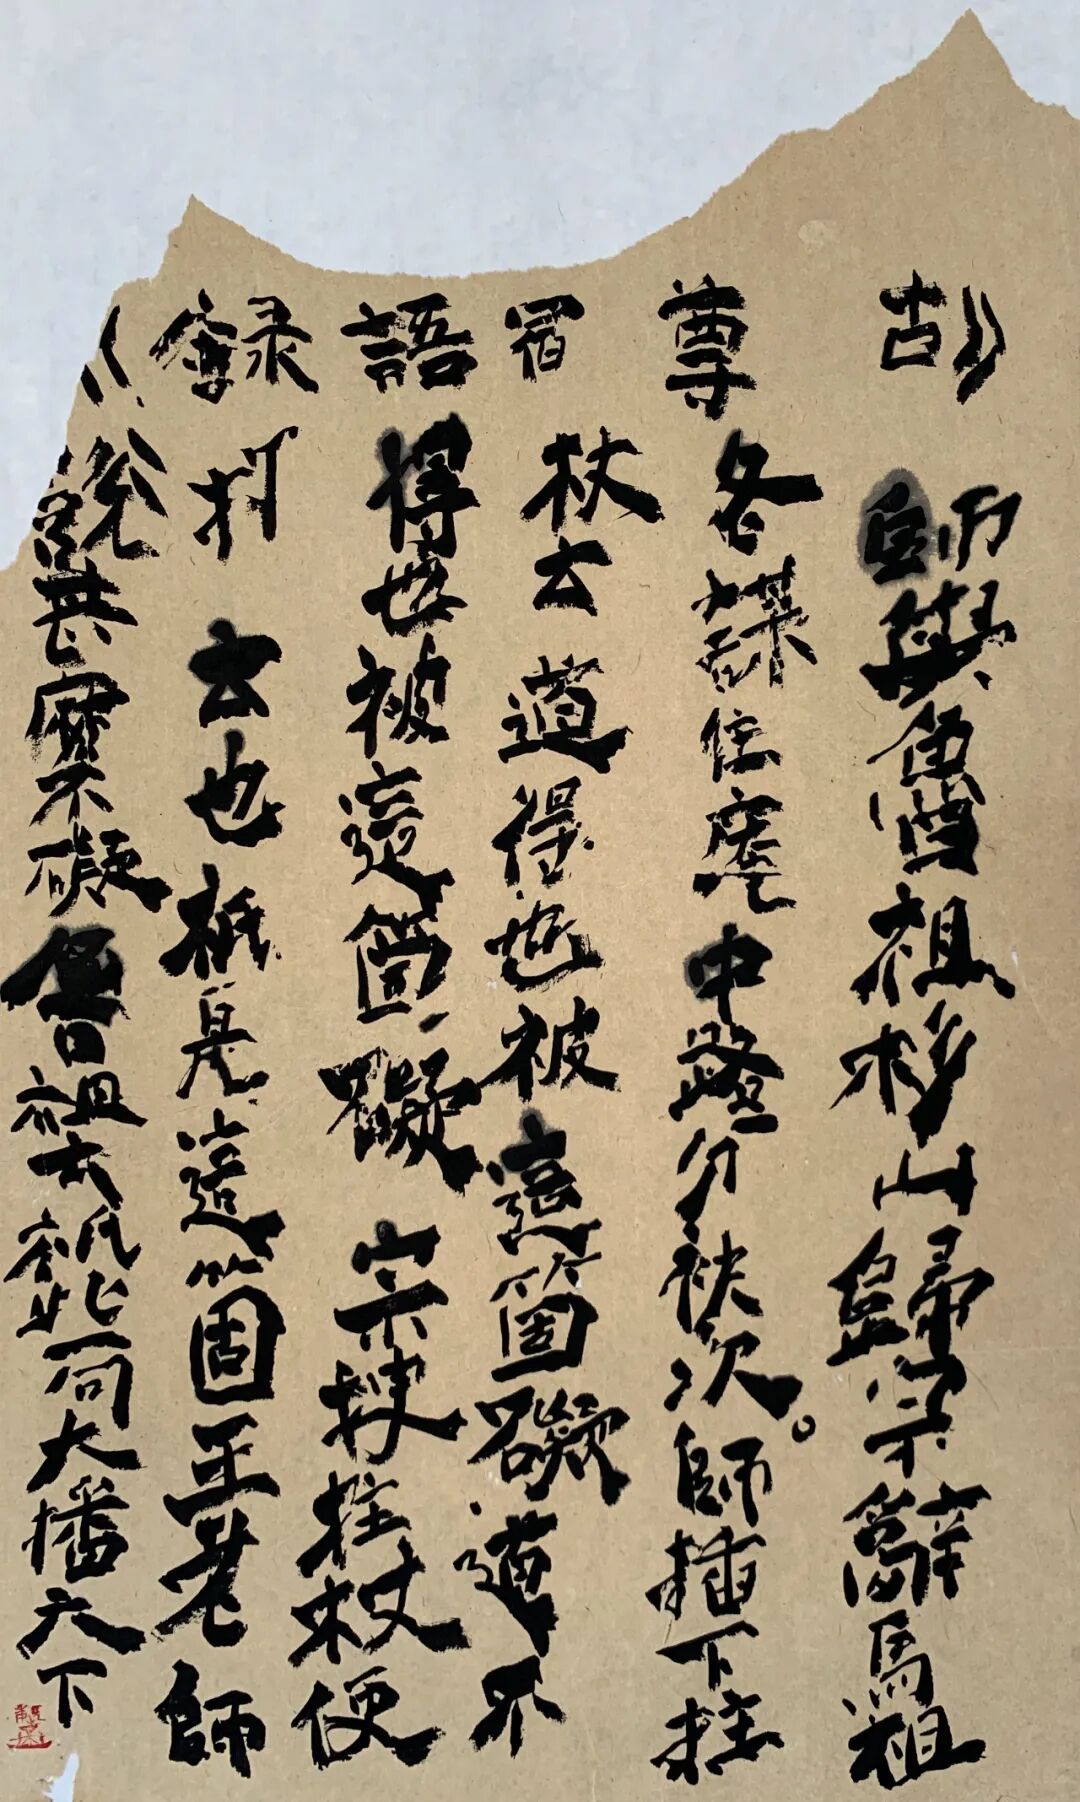 《古尊宿語錄》
師與魯祖杉山歸宗辭馬祖
各謀住庵中路分袂次。師插下拄
杖云道得也被這箇礙道不
得也被這箇礙宗拽拄杖便
打云也秖是這箇王老師
說甚麼不礙魯祖云秖此一句大播天下